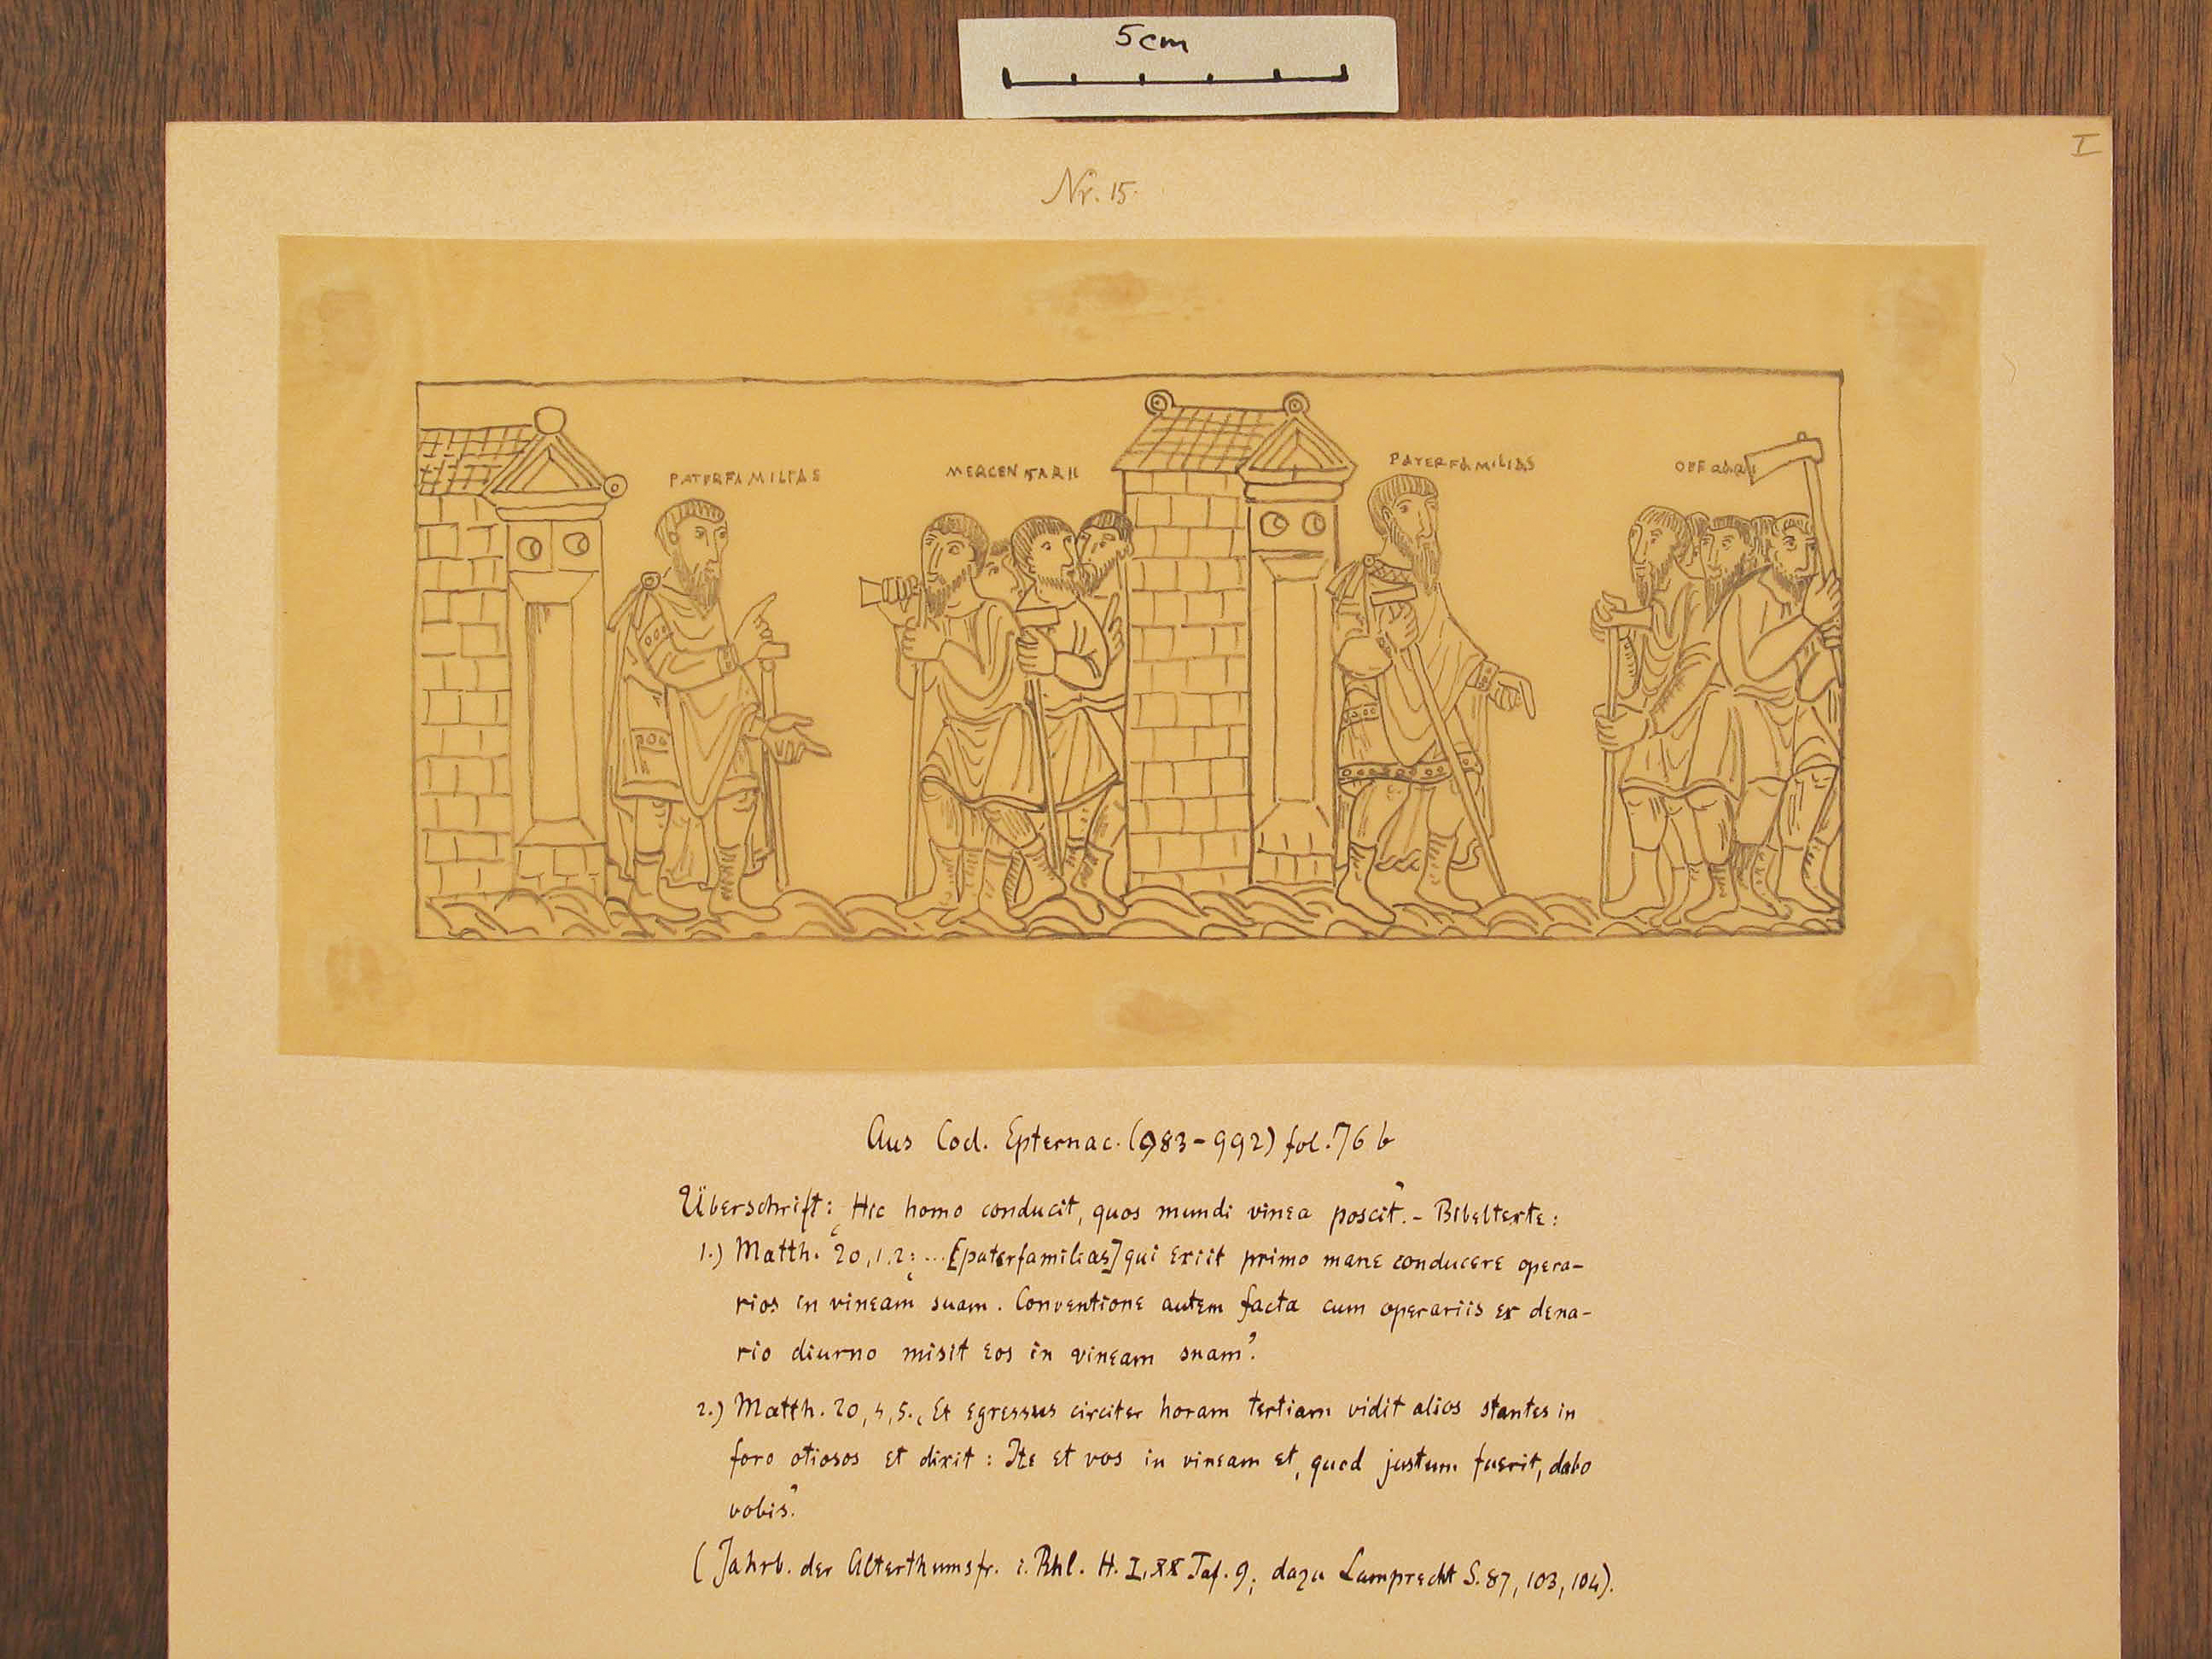 5cm
I
Nr. 15.
PATERFAMILIAS MERCENNARII PATERFAMILIAS
Aus Cod. Epternac. (983-992) fol. 76 b
Überschrift: „Hic homo conducit, quos mundi vinea poscit”. - Bibeltexte:
1.) Matth. 20, 1.2: „...[paterfamilias] qui exiit primo mane conducere opera-
rios in vineam suam. Conventione autem facta cum operariis ex dena-
rio diurno misit eos in vineam suam”.
2.) Matth. 20, 4, 5. „Et egressus circiter horam tertiam vidit alios stantes in
foro otiosos et dixit: Ite et vos in vineam et, quod justum fuerit, dabo
vobis”.
(Jahrb. der Alterthumsfr. i. Rhl. H. LXX Taf. 9; dazu Lamprecht S. 87, 103, 104).